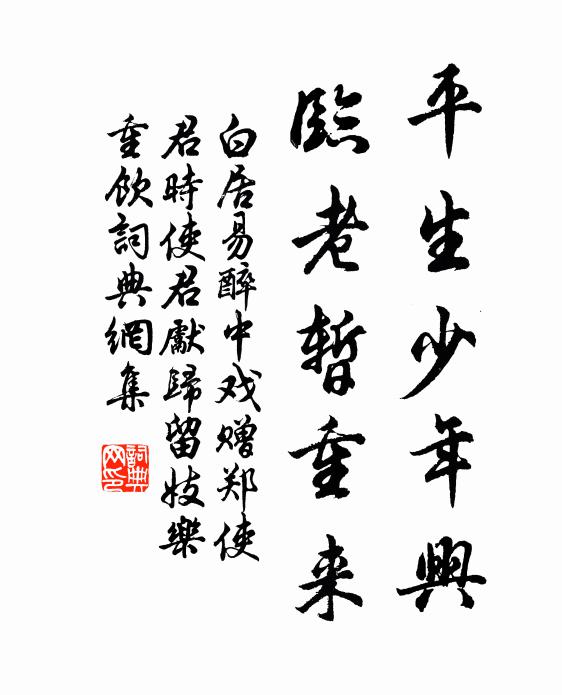 平生少年興
臨老暫重来
白居易醉中戏赠郑使
君時使君獻歸留妓樂
重飲詞典網集
詞典
网印